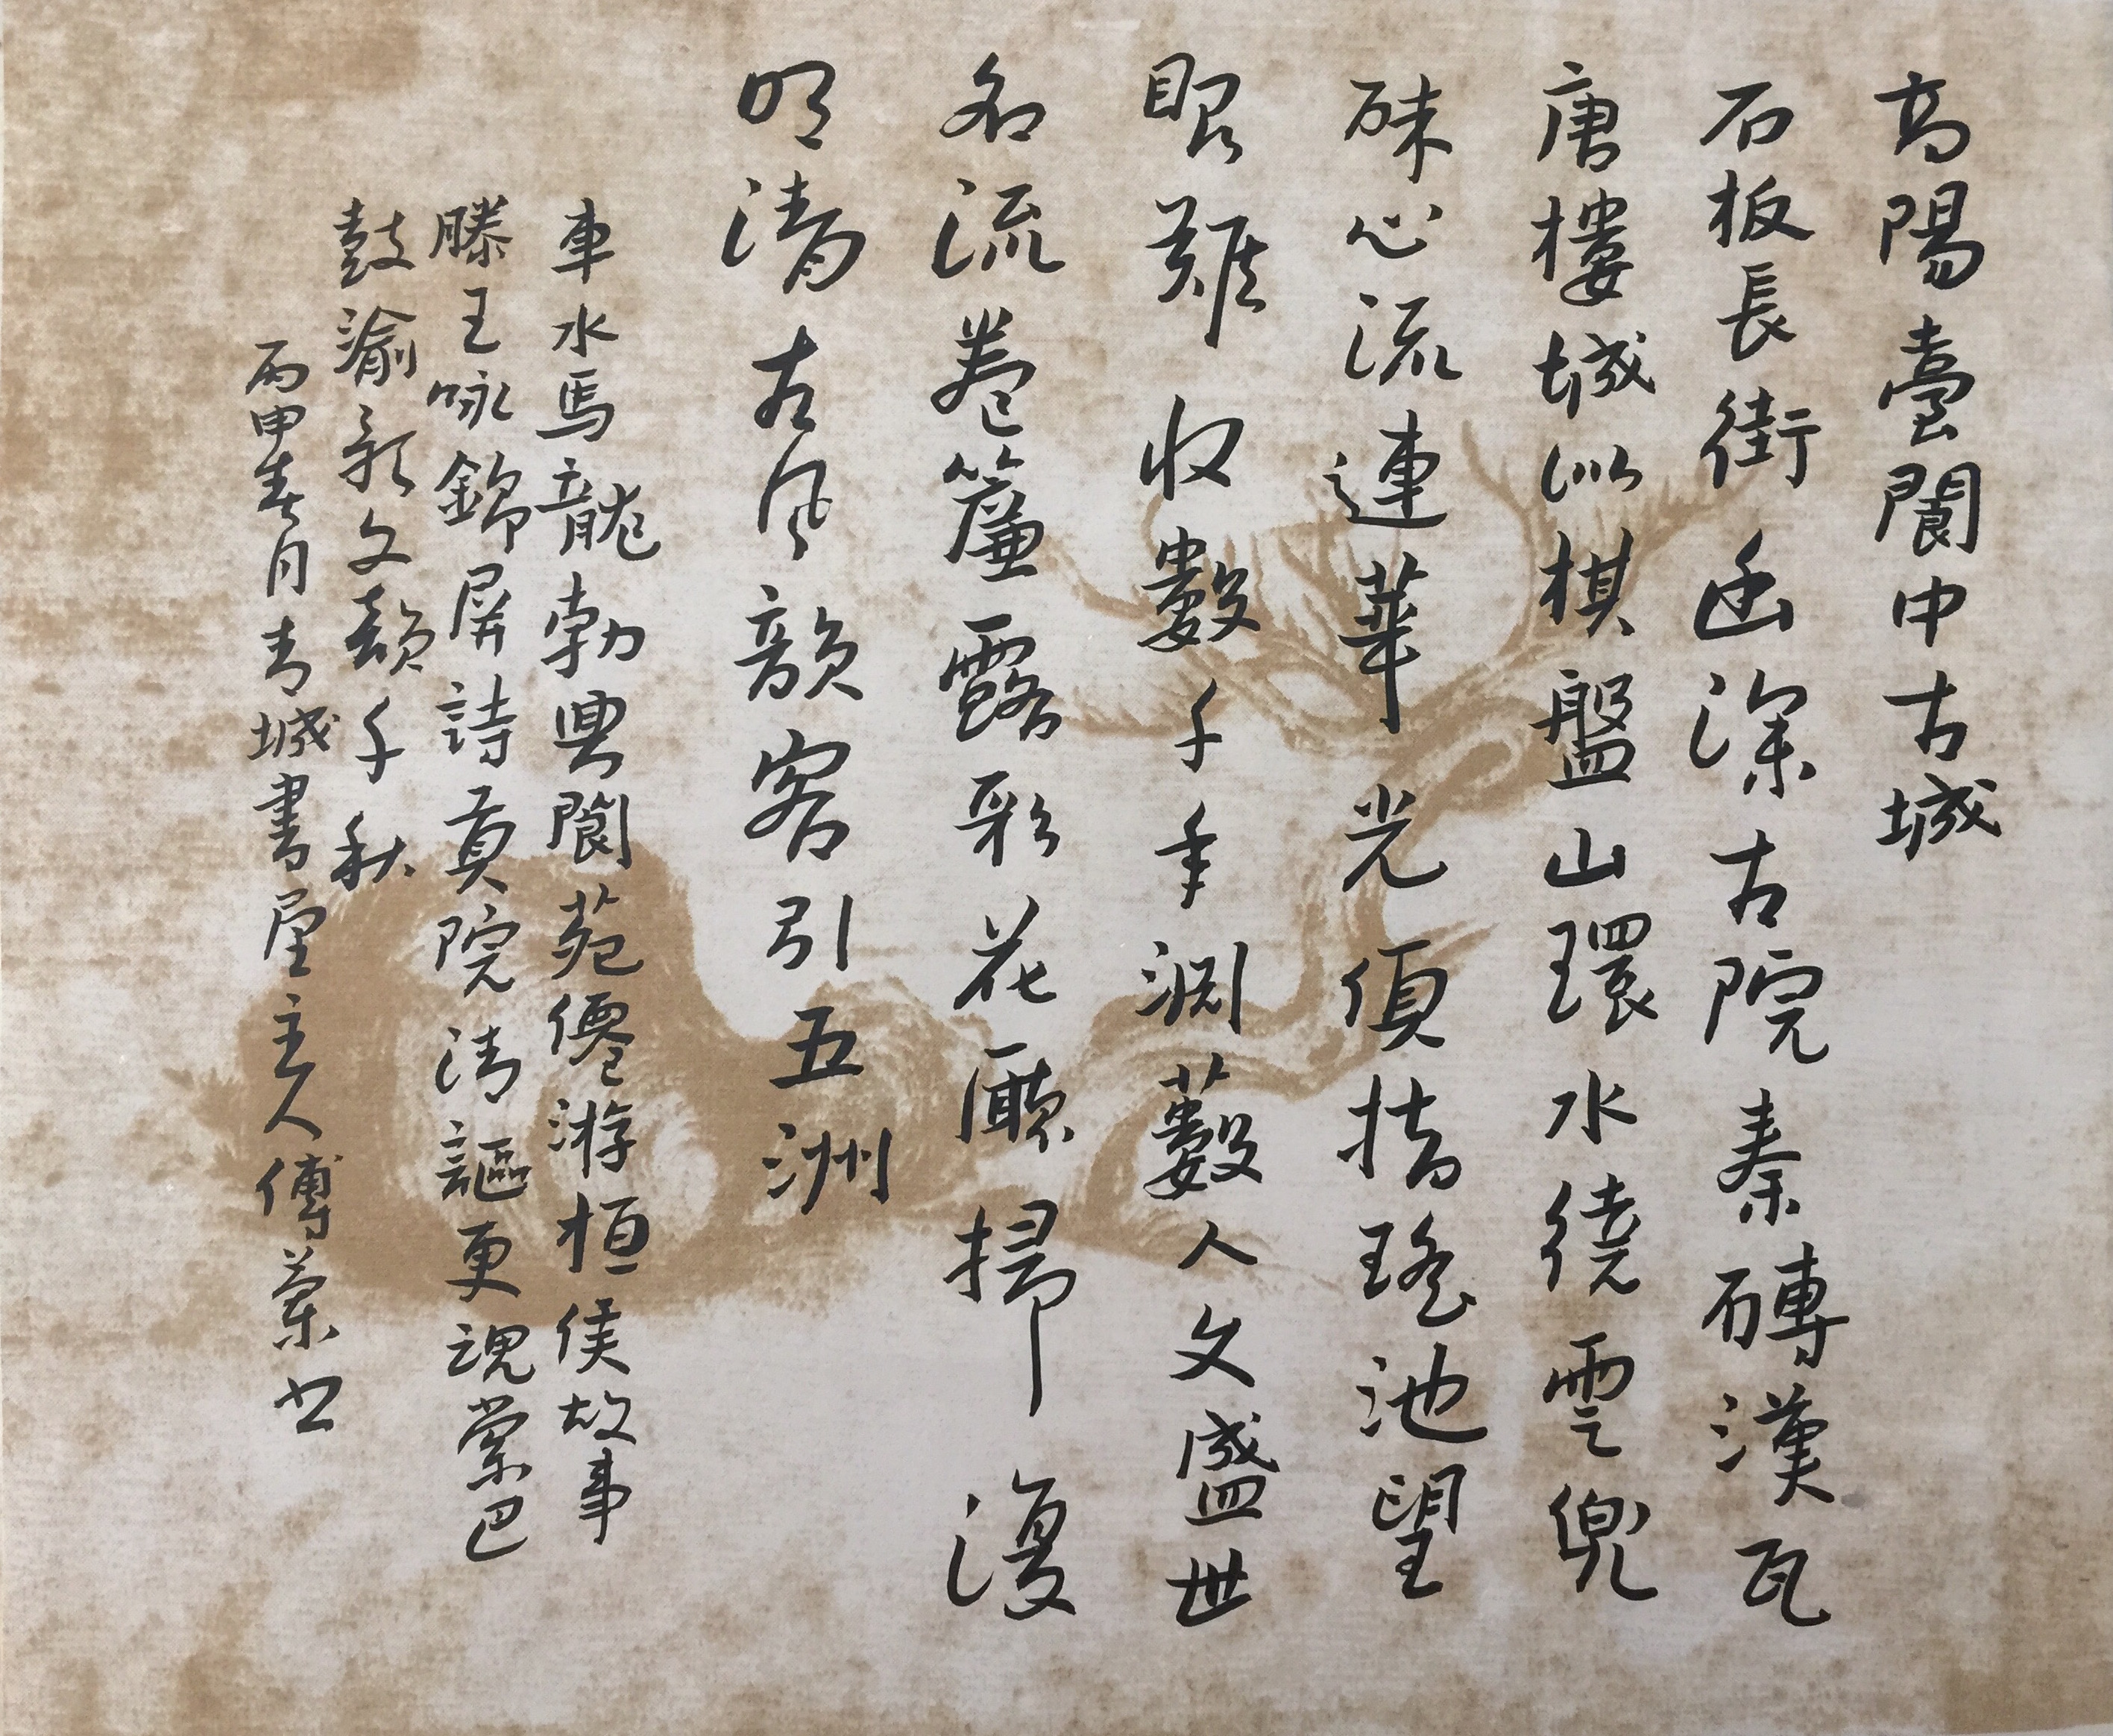 高陽臺閬中古城
石板長街幽深古院秦磚漢瓦
唐樓城似棋盤山環水繞雲兜
砞心流連華光須指瑤池望
眼難收數千年淵藪人文盛世
名流卷簾露彩花厰掃復
明清古風韻客引五洲
車水馬龍勃興閬苑僊游桓侯故事
滕王咏錦屏詩貢院清謳更魂縈巴
鼓渝歌文韻千秋
丙申春月青城書屋主人傅蘭书